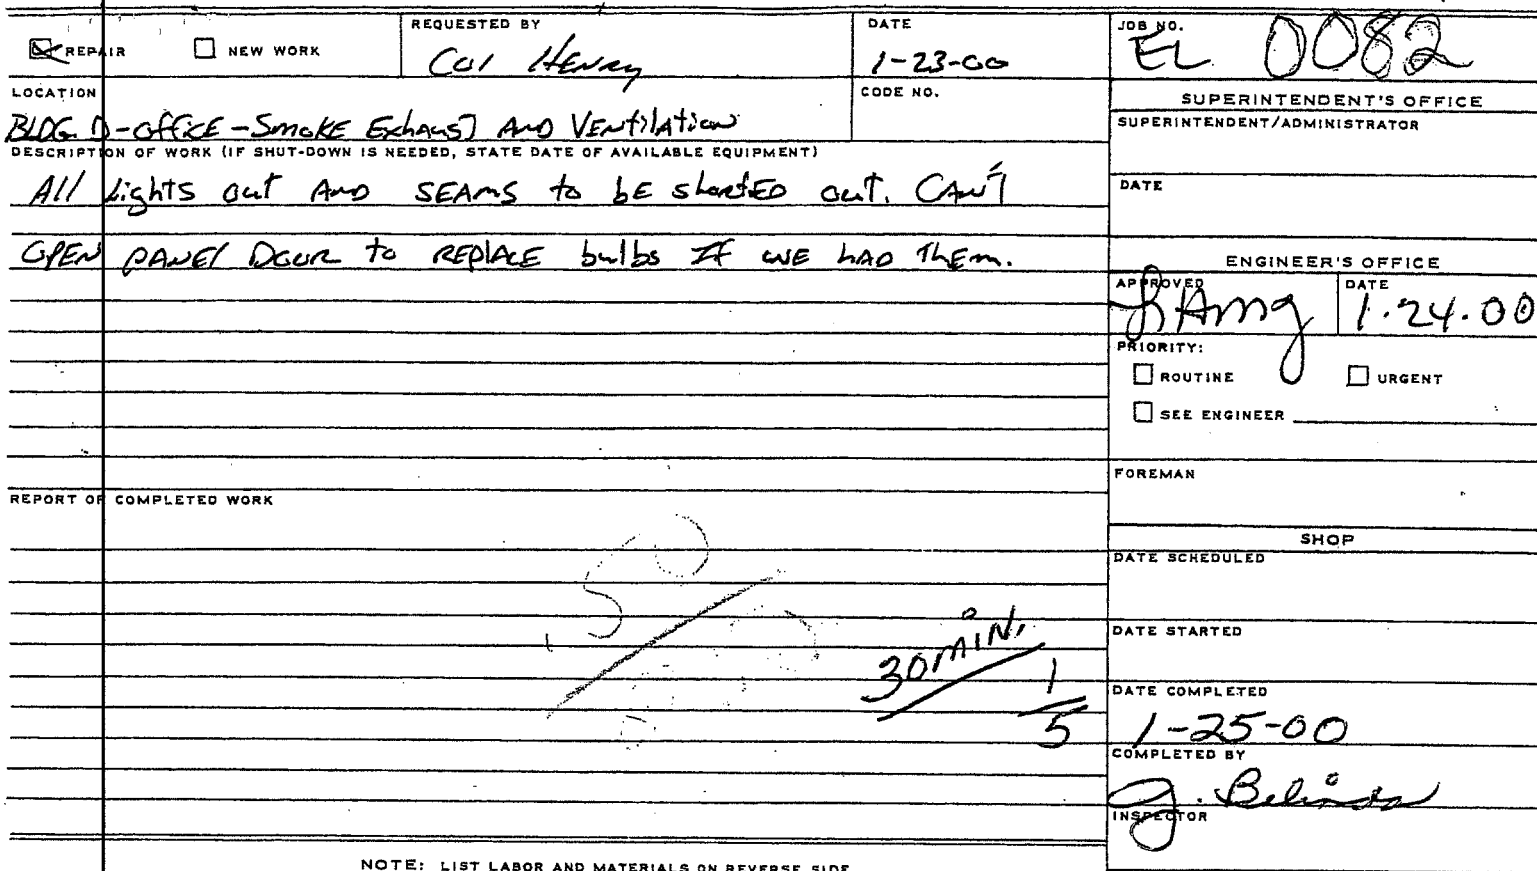 REPAIR
NEW WORK
REQUESTED BY
COI Henry
DATE
1-23-00
JOB NO.
EL 0082
LOCATION
BLDG D-OFFICE-SMOKE EXHAUST AND VENTILATION
CODE NO.
DESCRIPTION OF WORK (IF SHUT-DOWN IS NEEDED, STATE DATE OF AVAILABLE EQUIPMENT)
All Lights out AND SEAMS to bE shortED out. CAN'T
OPEN PANEl DOOR to REPlACE bulbs IF WE hAD ThEm.
REPORT OF COMPLETED WORK
30 MIN.
1
5
NOTE: LIST LABOR AND MATERIALS ON REVERSE SIDE
SUPERINTENDENT'S OFFICE
SUPERINTENDENT/ADMINISTRATOR
DATE
ENGINEER'S OFFICE
APPROVED
DATE
1.24.00
PRIORITY:
ROUTINE
URGENT
SEE ENGINEER
FOREMAN
SHOP
DATE SCHEDULED
DATE STARTED
DATE COMPLETED
1-25-00
COMPLETED BY
G. Belinda
INSPECTOR